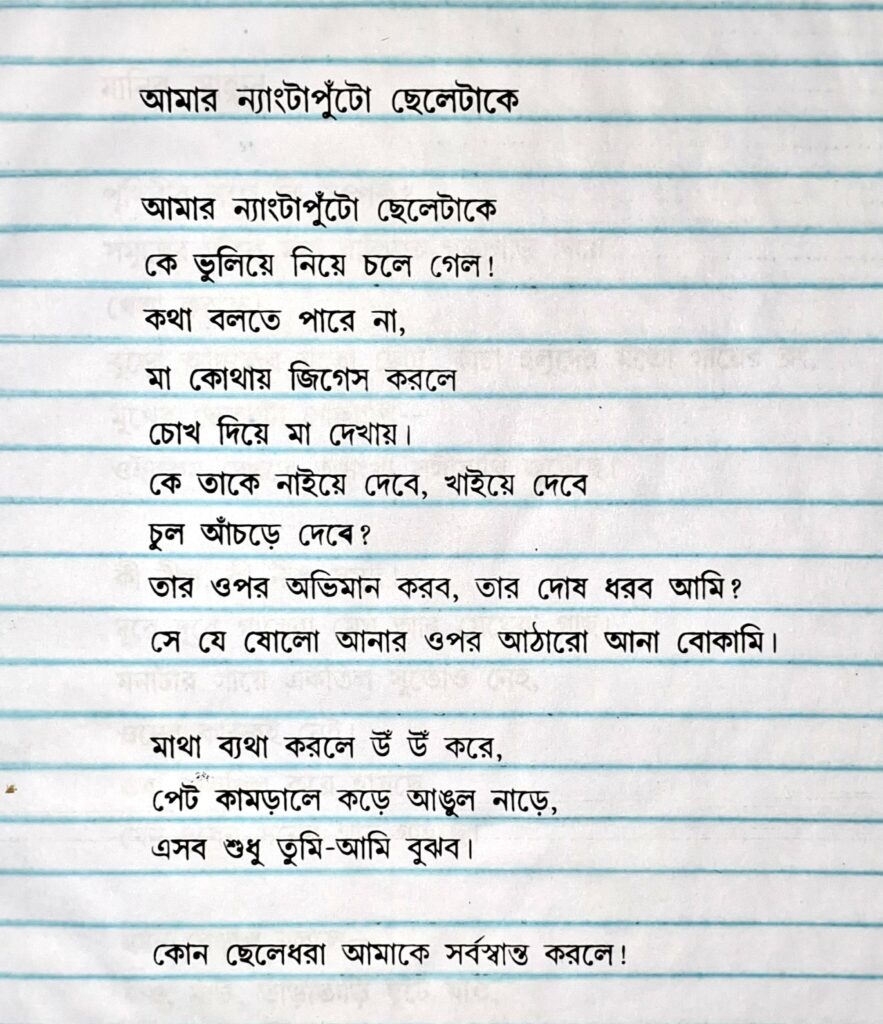 আমার ন্যাংটাপুঁটো ছেলেটাকে
আমার ন্যাংটাপুঁটো ছেলেটাকে
কে ভুলিয়ে নিয়ে চলে গেল!
কথা বলতে পারে না,
মা কোথায় জিগেস করলে
চোখ দিয়ে মা দেখায়।
কে তাকে নাইয়ে দেবে, খাইয়ে দেবে
চুল আঁচড়ে দেবে?
তার ওপর অভিমান করব, তার দোষ ধরব আমি?
সে যে ষোলো আনার ওপর আঠারো আনা বোকামি।
মাথা ব্যথা করলে উঁ উঁ করে,
পেট কামড়ালে কড়ে আঙুল নাড়ে,
এসব শুধু তুমি-আমি বুঝব।
কোন ছেলেধরা আমাকে সর্বস্বান্ত করলে!